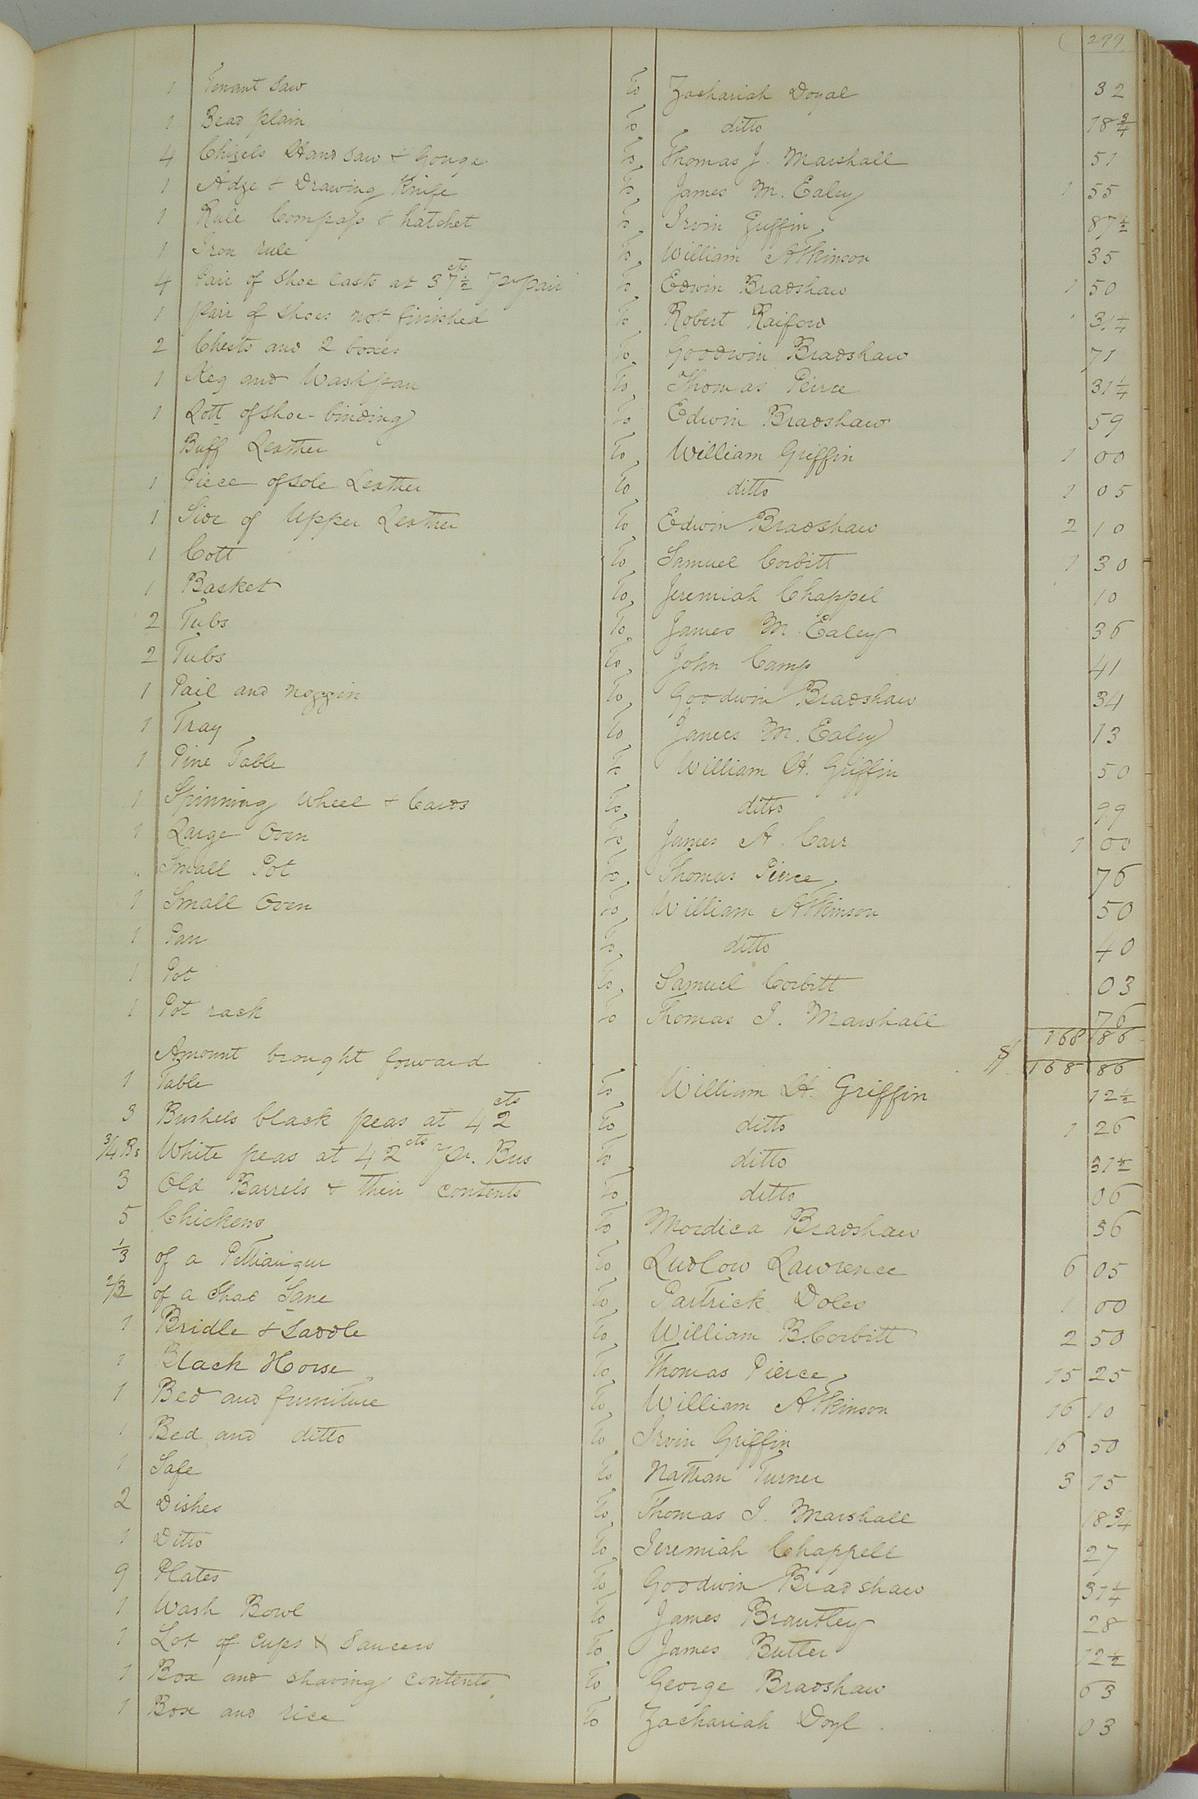 299
1 Tenant Saw To Zachariah Doyal 32
1 Bead plain To ditto 18 3/4
4 Chizels Hand Saw & Gouge To Thomas J. Marshall 51
1 Adze & Drawing Knife To James M. Ealey 1 55
1 Rule Compass & hatchet To Irvin Guffin 87 1/2
1 Iron rule To William Atkinson 35
4 Pair of Shoe Lasts at 37 1/2 cts pr pair To Edwin Bradshaw 1 50
1 pair of Shoes not finished To Robert Raiford 31 1/4
2 Chests and 2 boxes To Goodwin Bradshaw 71
1 Keg and Washpan To Thomas Peirce 31 1/4
1 Lott of shoe-binding To Edwin Bradshaw 59
Buff Leather To William Griffin 1 00
1 Piece of sole Leather To ditto 1 05
1 Side of Upper Leather To Edwin Bradshaw 2 10
1 Cott To Samuel Corbitt 1 30
1 Basket To Jeremiah Chappel 10
2 Tubs To James M. Ealey 36
2 Tubs To John Camp 41
1 Pail and noggin To Goodwin Bradshaw 34
1 Tray To James M. Ealey 13
1 Pine Table To William H. Griffin 50
1 Spinning Wheel & Cards To ditto 99
1 Large Oven To James A. Carr 1 00
Small Pot To Thomas Pierce 76
1 Small Oven To William Atkinson 50
1 Pan To ditto 40
1 Pot To Samuel Corbitt 03
1 Pot rack To Thomas J. Marshall 76
$ 168 86
Amount brought forward 168 86
1 Table To William H. Griffin 12 1/2
3 Bushels black peas at 42 cts To ditto 1 26
3/4 Bs White peas at 42 cts pr. Bus To ditto 31 1/2
3 Old Barrels & their contents To ditto 06
5 Chickens To Mordica Bradshaw 56
1/3 of a Pettiaugur To Ludlow Lawrence 6 05
2/3 of a Shad Sane To Partrick Doles 1 00
1 Bridle & Saddle To William B. Corbitt 2 50
1 Black Horse To Thomas Pierce 15 25
1 Bed and furniture To William Atkinson 16 10
1 Bed and ditto To Irvin Griffin 16 50
1 Safe To Nathan Turner 3 15
2 Dishes To Thomas J. Marshall 18 3/4
1 Ditto To Jeremiah Chappell 27
9 Plates To Goodwin Bradshaw 31 1/4
1 Wash Bowl To James Brantley 28
1 Lot of Cups & Saucers To James Butler 12 1/2
1 Box and shaving contents To George Bradshaw 63
1 Box and rice To Zachariah Doyl 03